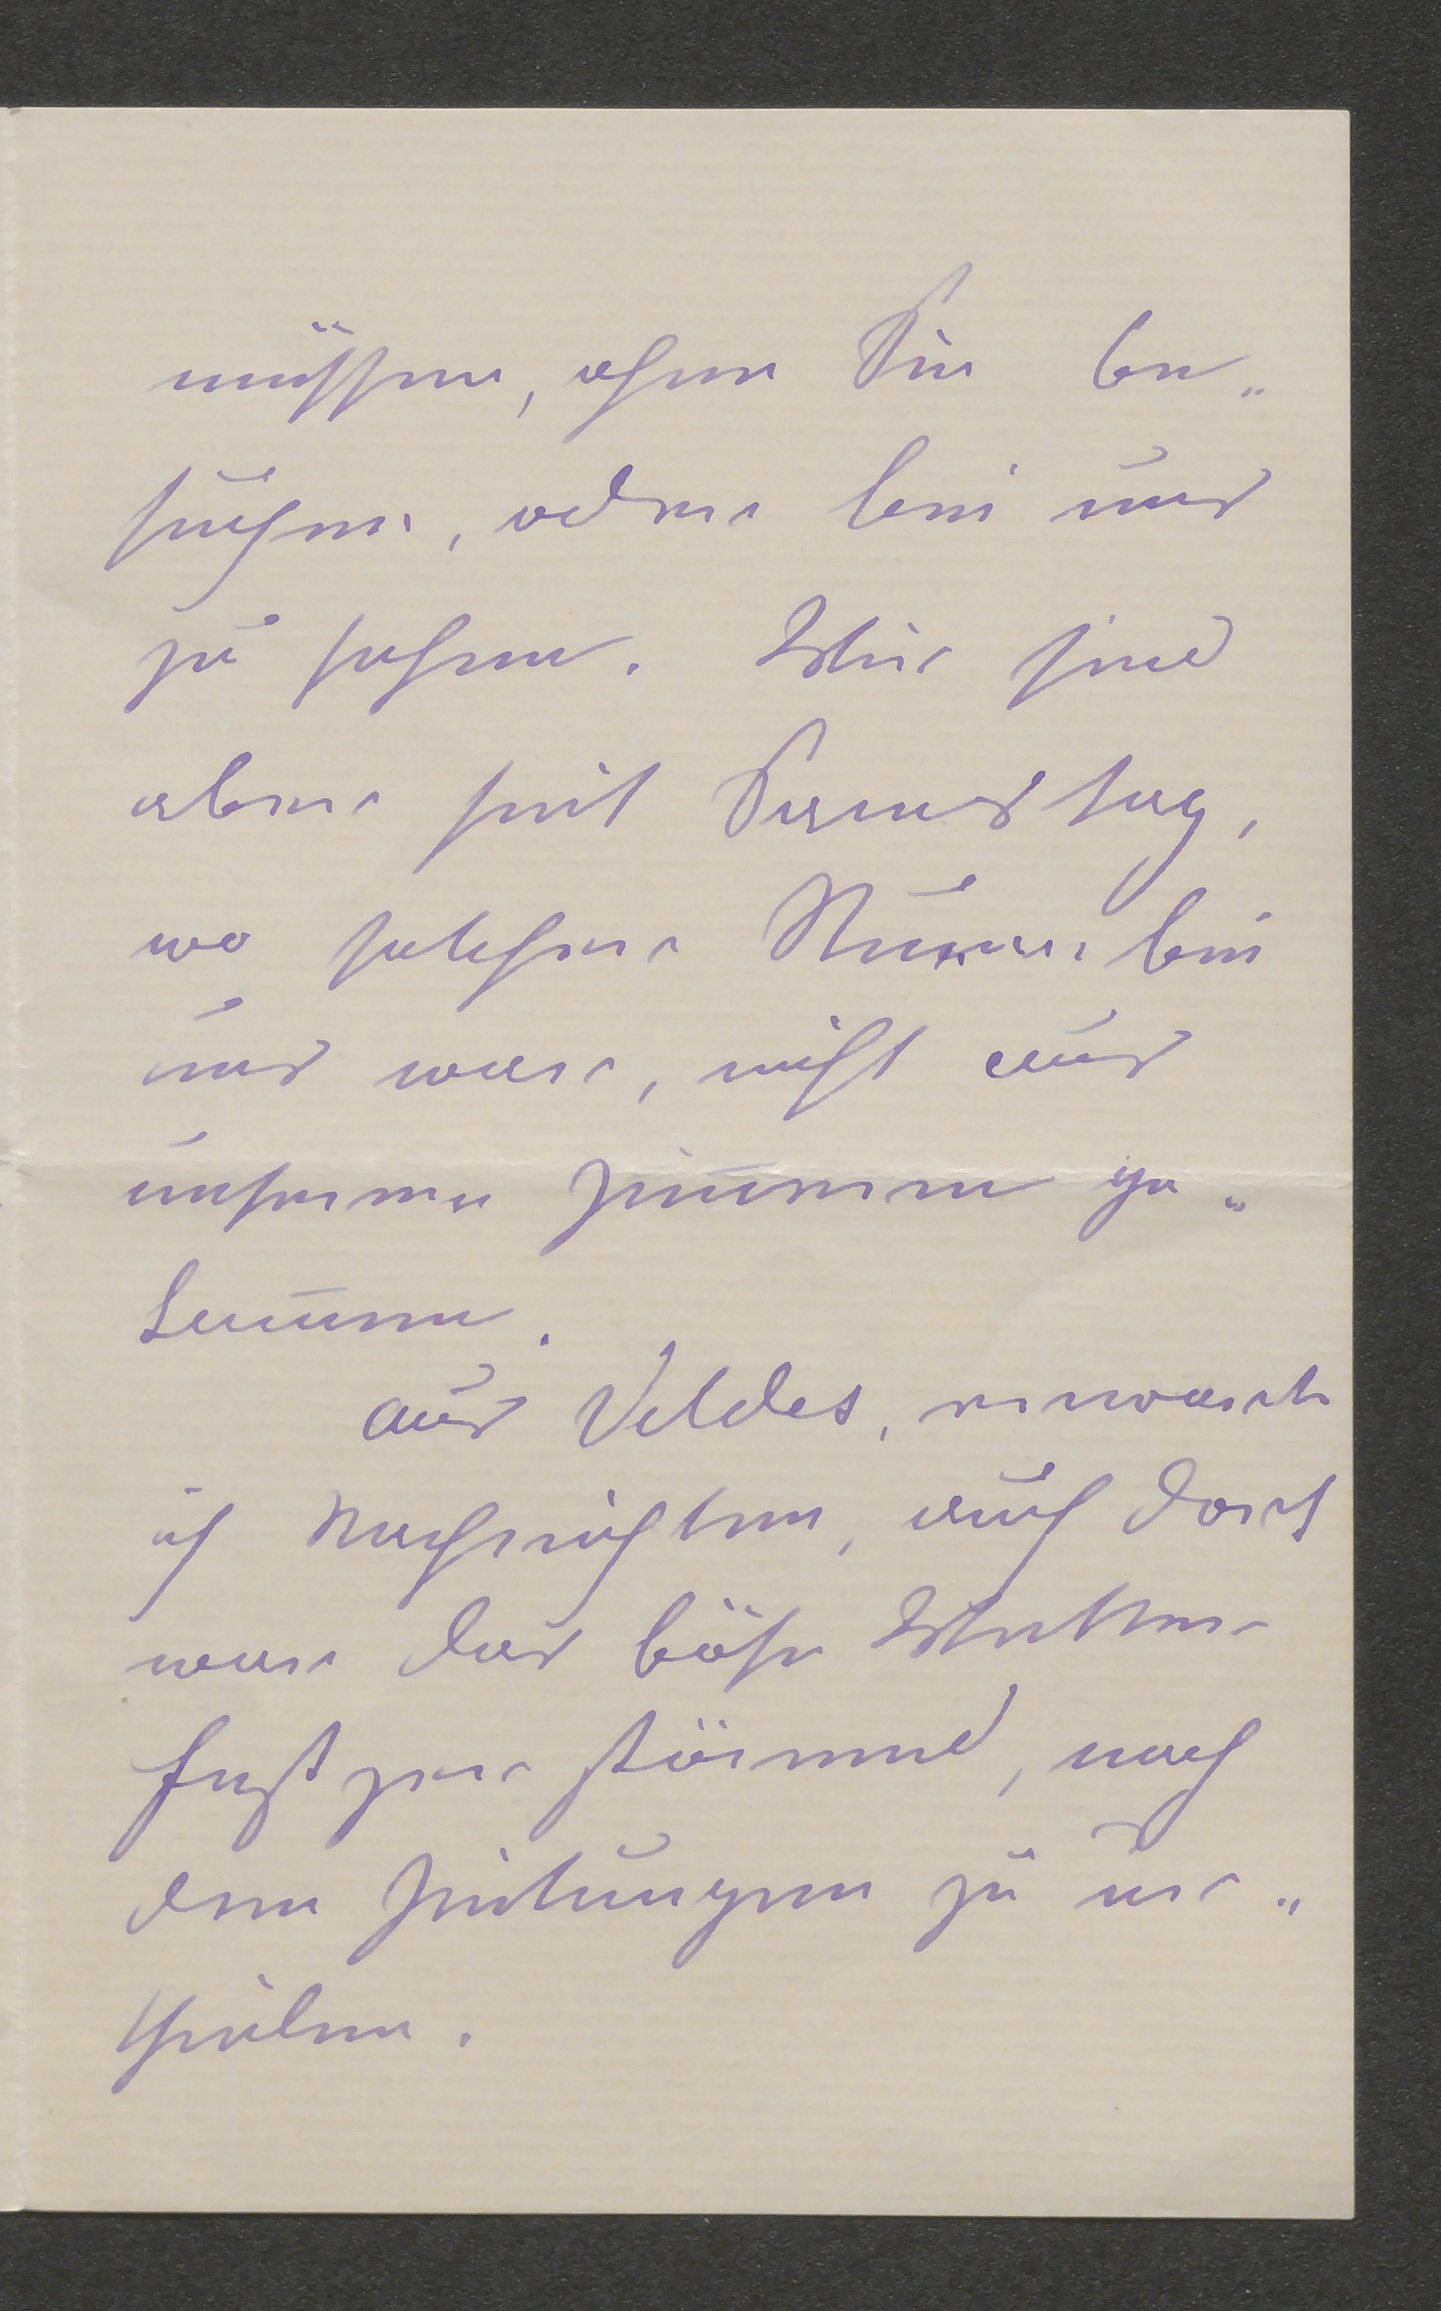 müssen, ohne Sie be„
suchen, oder bei uns
zu sehen. Wir sind
aber seit Samstag,
wo solcher Sturm bei
uns war, nicht aus
unseren Zimmern ge„
kommen.
Aus Veldes, erwarte
ich Nachrichten, auch dort
war das böse Wetter
sehr zerstörend, nach
den Zeitungen zu ur„
theilen.